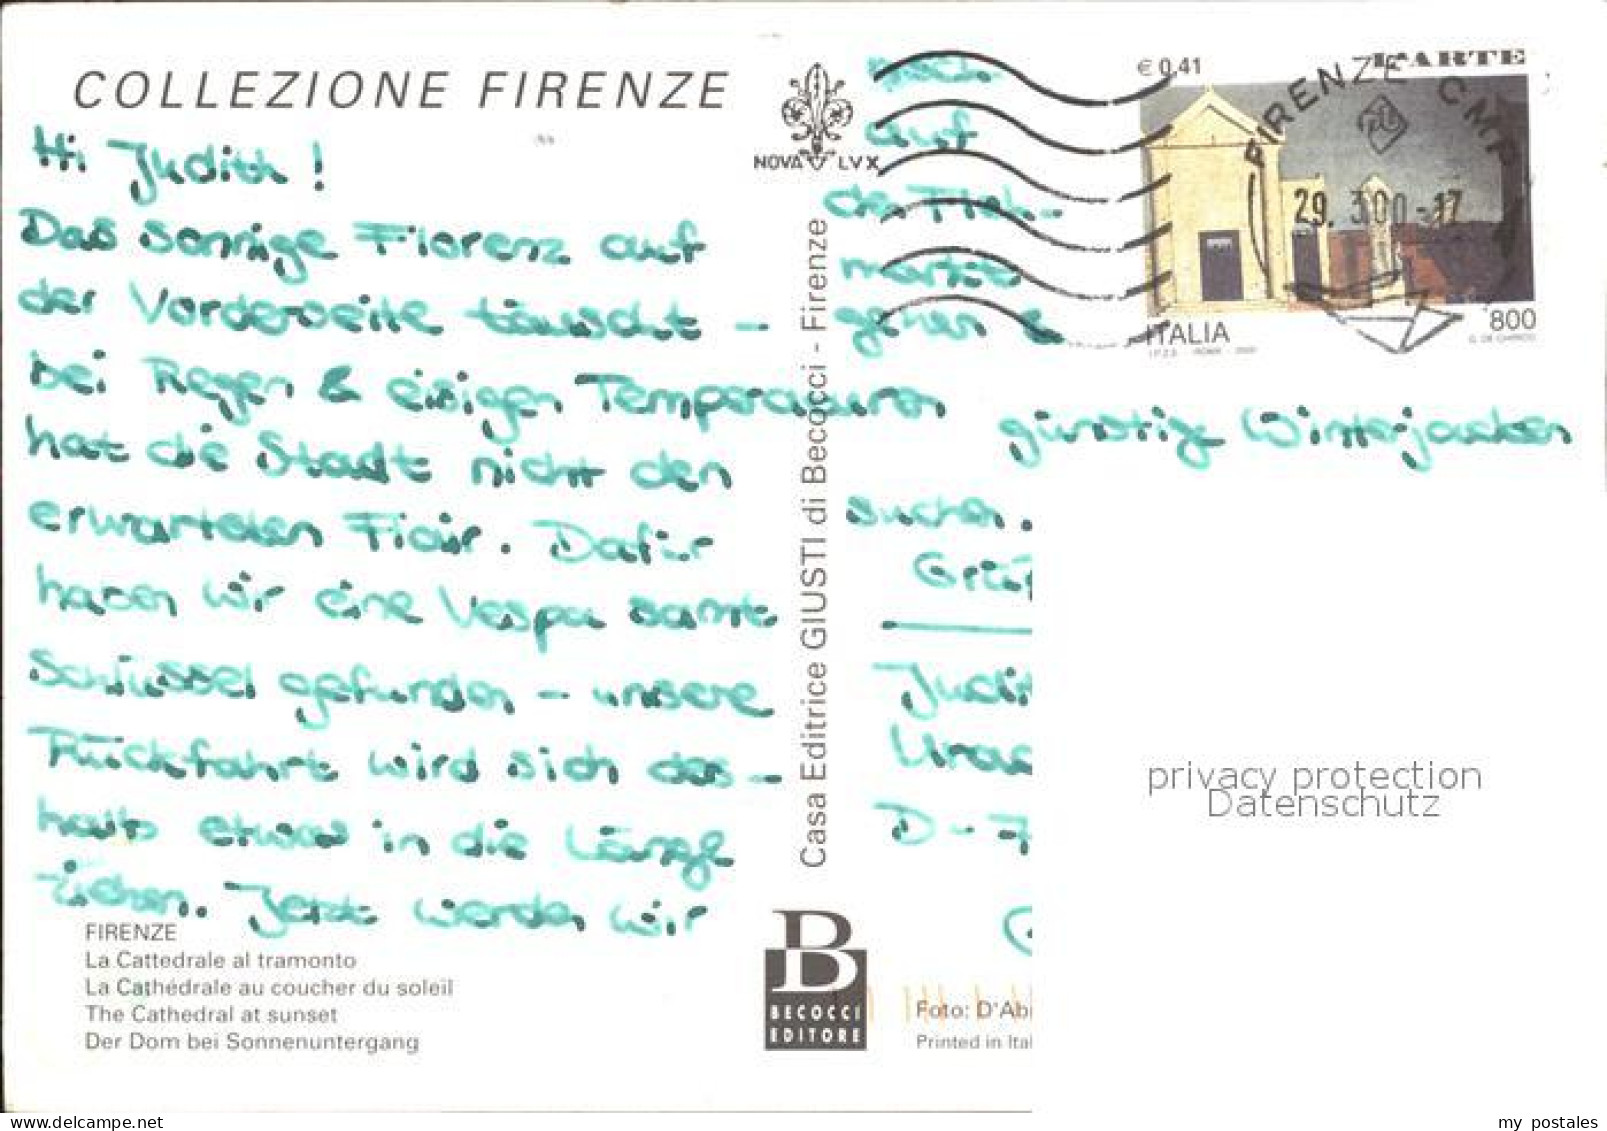 COLLEZIONE FIRENZE
Hi Judith!
Das sonnige Florenz auf
der Vorderseite täuscht –
bei Regen & eisigen Temperaturen
hat die Stadt nicht den
erwarteten Flair. Dafür
haben wir eine Vespa samt
Schlüssel gefunden – unsere
Rückfahrt wird sich des-
halb etwas in die Länge
ziehen. Jetzt werden wir
FIRENZE
La Cattedrale al tramonto
La Cathédrale au coucher du soleil
The Cathedral at sunset
Der Dom bei Sonnenuntergang
NOVA LVX
Casa Editrice GIUSTI di Becocci - Firenze
B
BECOCCI
EDITORE
noch
auf
den Floh-
märkte
gehen &
günstige Winterjacken
suchen.
Grüß
Judit
Urac
D-7
Foto: D'Abi
Printed in Ital
€ 0,41
L'ARTE
FIRENZE CMP
29. 3.00-17
ITALIA
I.P.Z.S. - ROMA - 2000
800
G. DE CHIRICO
privacy protection
Datenschutz
my postales